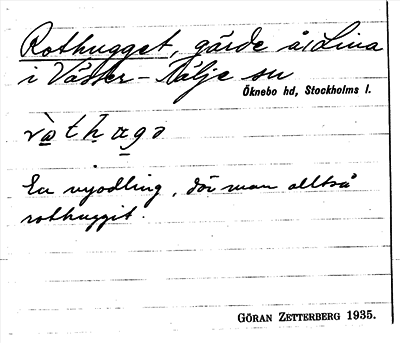 Rothugget, gärde å Lina
i Väster-Tälje sn
Öknebo hd, Stockholms l.
En nyodling, där man alltså
rothuggit.
GÖRAN ZETTERBERG 1935.